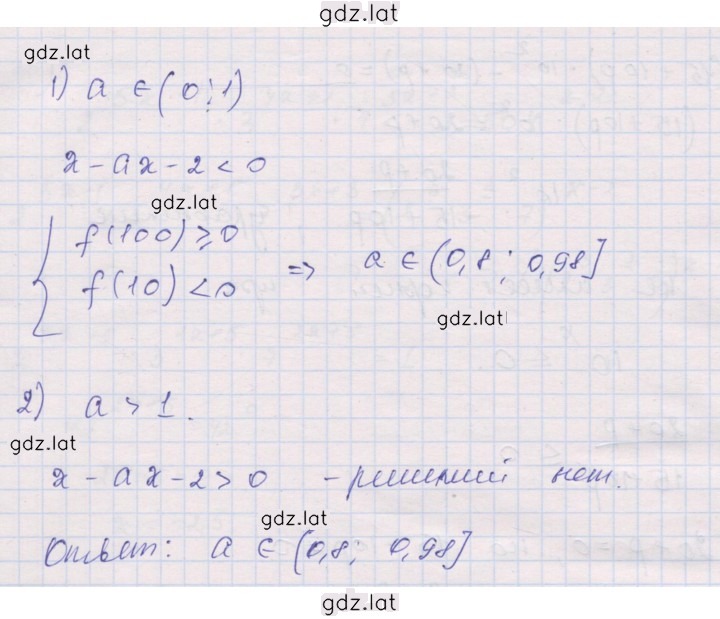 gdz.lat
gdz.lat
1) a ∈ (0; 1)
x - ax - 2 < 0
gdz.lat
{ f(100) ≥ 0
f(10) < 0 => a ∈ (0,8; 0,98]
gdz.lat
2) a > 1.
gdz.lat
x - ax - 2 > 0 - решений нет.
gdz.lat
Ответ: a ∈ (0,8; 0,98]
gdz.lat